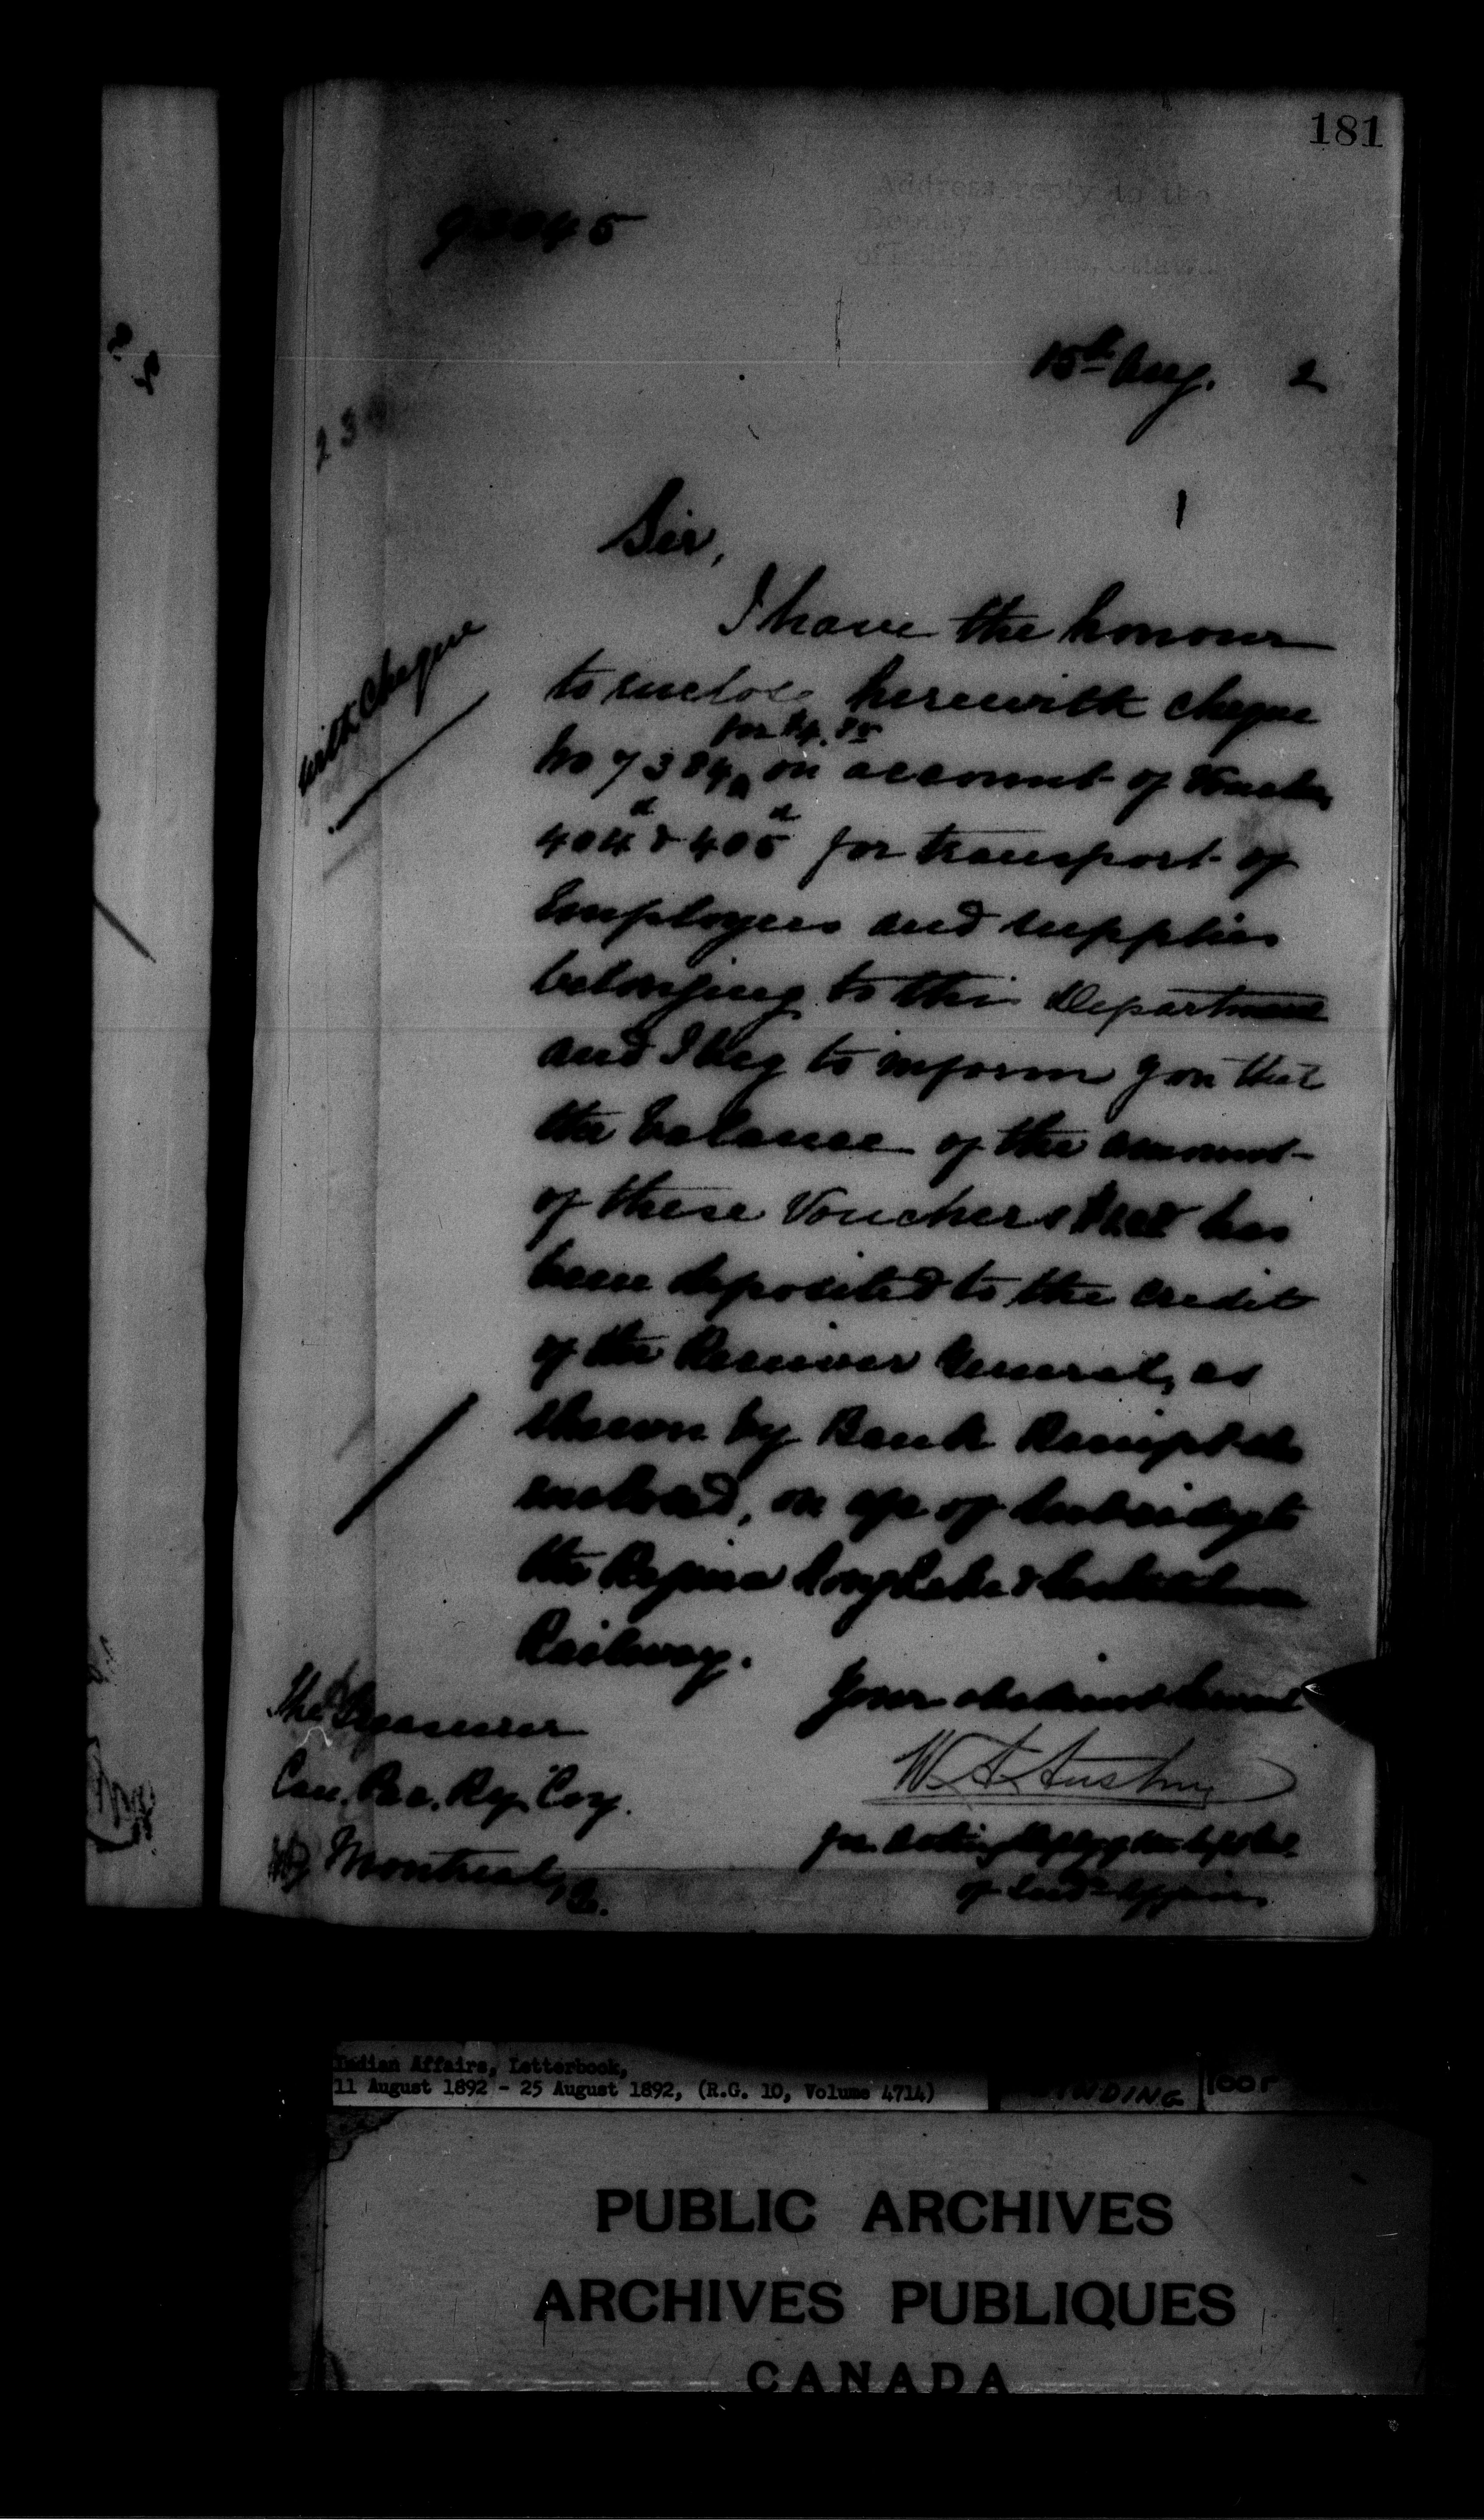 181
93045
Address reply to the
Deputy
of Indian Affairs, Ottawa
15th Aug. 2
23
Sir,
I have the honour
with Cheque
to enclose herewith cheque
for $4.85
No 7384 on account of Vouchers
404d & 405d for transport of
Employees and supplies
belonging to this Department
and I beg to inform you that
the balance of the amount
of these Vouchers has
been deposited to the credit
of the Receiver General, as
shown by Bank Receipt
enclosed, on a/c of subsidy to
the Regina Long Lake & Saskatchewan
Railway.
Your obedient servant
The Treasurer
W. A. Austin
Can. Pac. Ry. Coy.
for Acting Deputy
Montreal, Q.
of Ind. Affairs.
Indian Affairs, Letterbook,
11 August 1892 - 25 August 1892, (R.G. 10, Volume 4714)
BINDING
PUBLIC ARCHIVES
ARCHIVES PUBLIQUES
CANADA